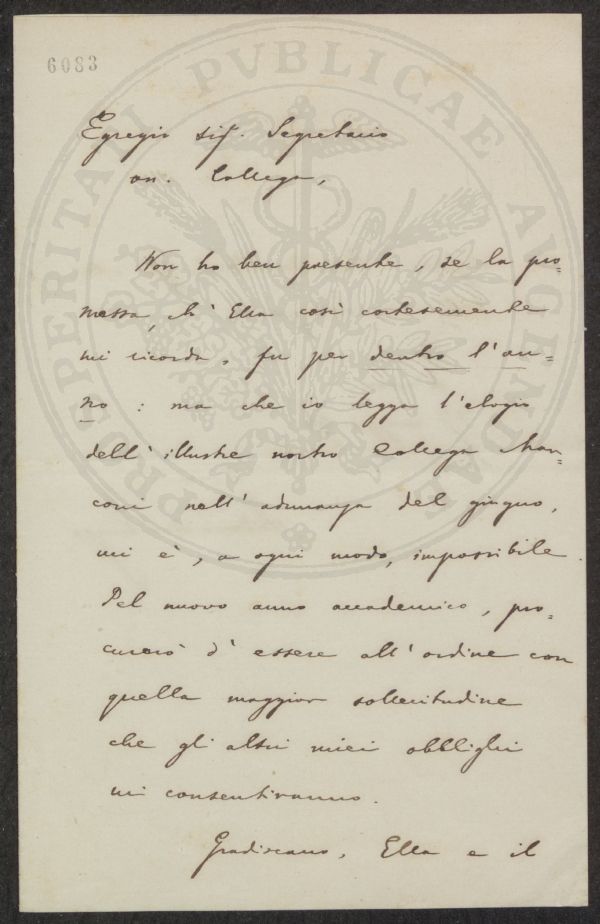 6083
PROSPERITATI PVBLICAE AVGENDAE
Egregio sig. Segretario
on. Collega,
Non ho ben presente, se la pro=
messa, ch'Ella così cortesemente
mi ricorda, fu per dentro l'an=
no : ma che io legga l'elogio
dell'illustre nostro Collega Man=
coni nell'adunanza del giugno,
mi è, a ogni modo, impossibile.
Pel nuovo anno accademico, pro=
curerò d'essere all'ordine con
quella maggior sollecitudine
che gli altri miei obblighi
mi consentiranno.
Gradiscano, Ella e il